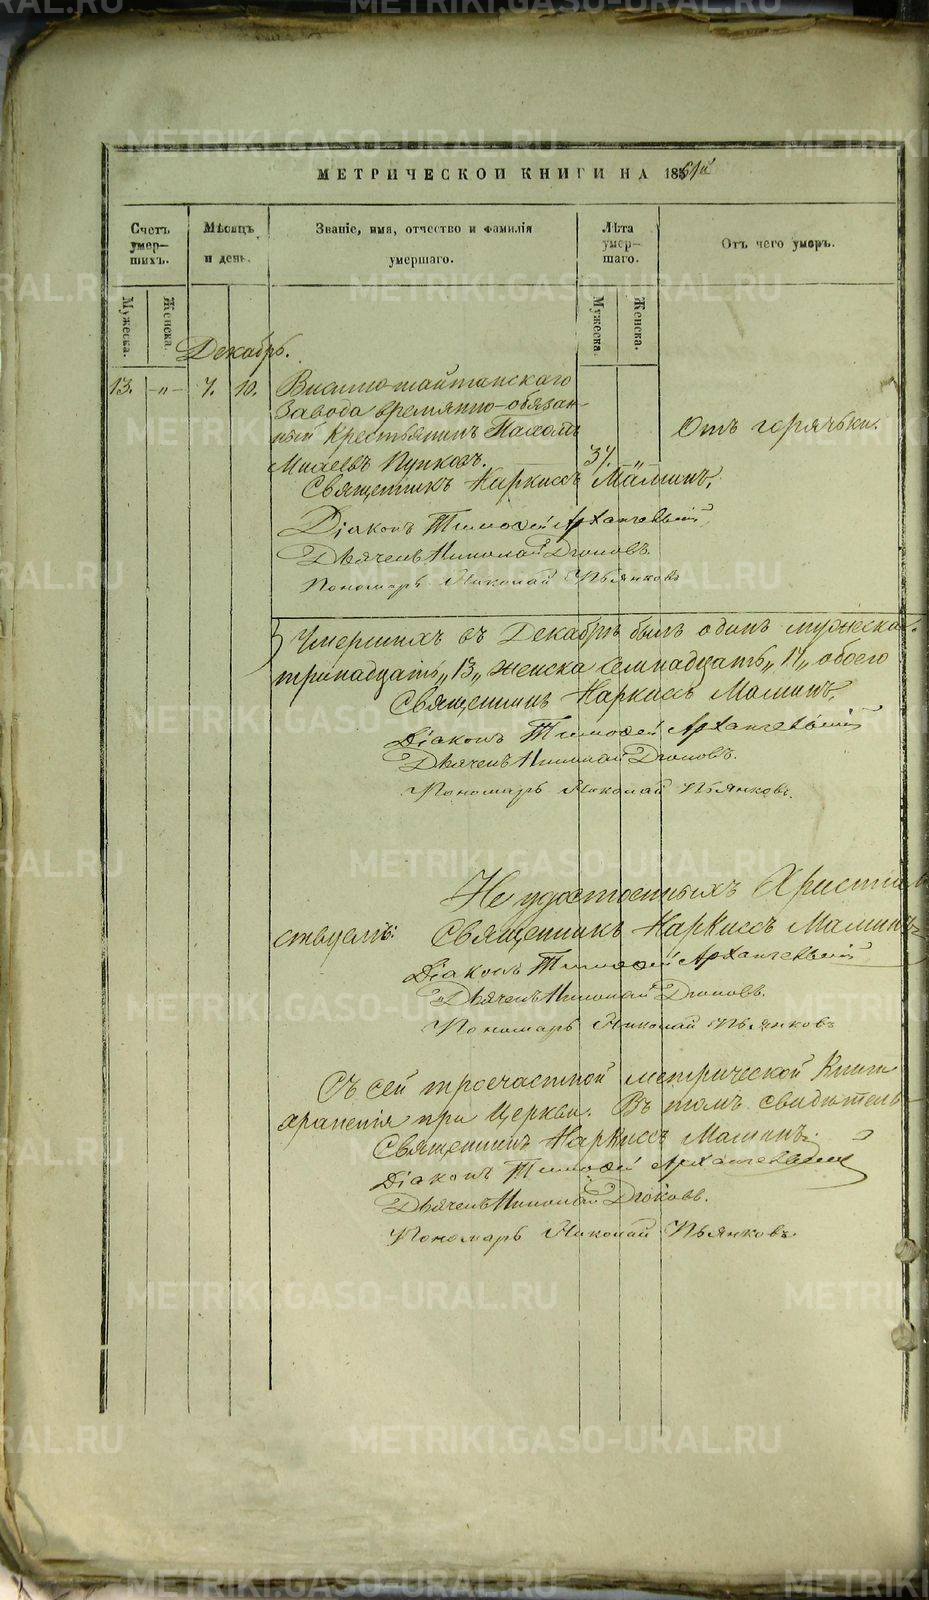 МЕТРИЧЕСКОЙ КНИГИ НА 1861й
Счетъ умер-шихъ.
Мѣсяцъ и день.
Званіе, имя, отчество и фамилія умершаго.
Лѣта умер-шаго.
Отъ чего умеръ.
Мужеска.
Женска.
Мужеска.
Женска.
Декабрь.
13. -"- 7. 10. Висимо-шайтанскаго
Завода времянно-обязан-
ный Крестьянинъ Пахомъ
Отъ горячьки.
Пупковъ. 37. "
Священникъ Наркиссъ Маминъ.
Діаконъ Тимофей Архангельскій
Дьячекъ Николай
Пономарь Николай Пьянковъ
Умершихъ въ Декабрѣ былъ одинъ мужеска
тринадцать „13„ женска Семнадцать„ 17„ обоего
Священникъ Наркиссъ Маминъ.
Діаконъ Тимофей Архангельскій
Дьячекъ Николай
Пономарь Николай Пьянковъ.
Не удостоенныхъ Христіан
ствуемъ: Священникъ Наркиссъ Маминъ
Діаконъ Тимофей Архангельскій
Дьячекъ Николай
Пономарь Николай Пьянковъ
Съ сей троечастной метрической Книги
храненія при Церкви. Въ томъ свидѣтель-
Священникъ Наркиссъ Маминъ.
Діаконъ Тимофей Архангельскій
Дьячекъ Николай
Пономарь Николай Пьянковъ
METRIKI.GASO-URAL.RU